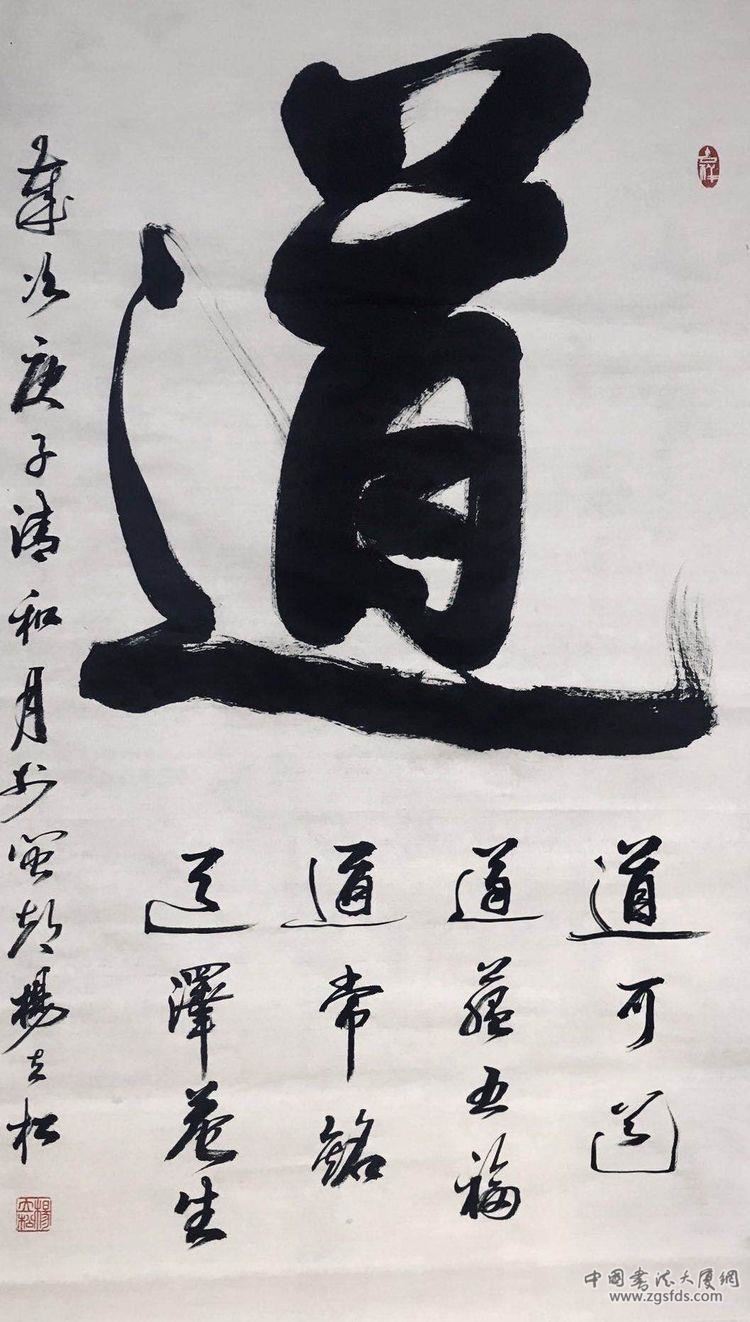 道
道可道
道蘊五福
道常銘
道澤蒼生
歲次庚子清和月於閩都楊松
中國書法大廈網
www.zgsfds.com